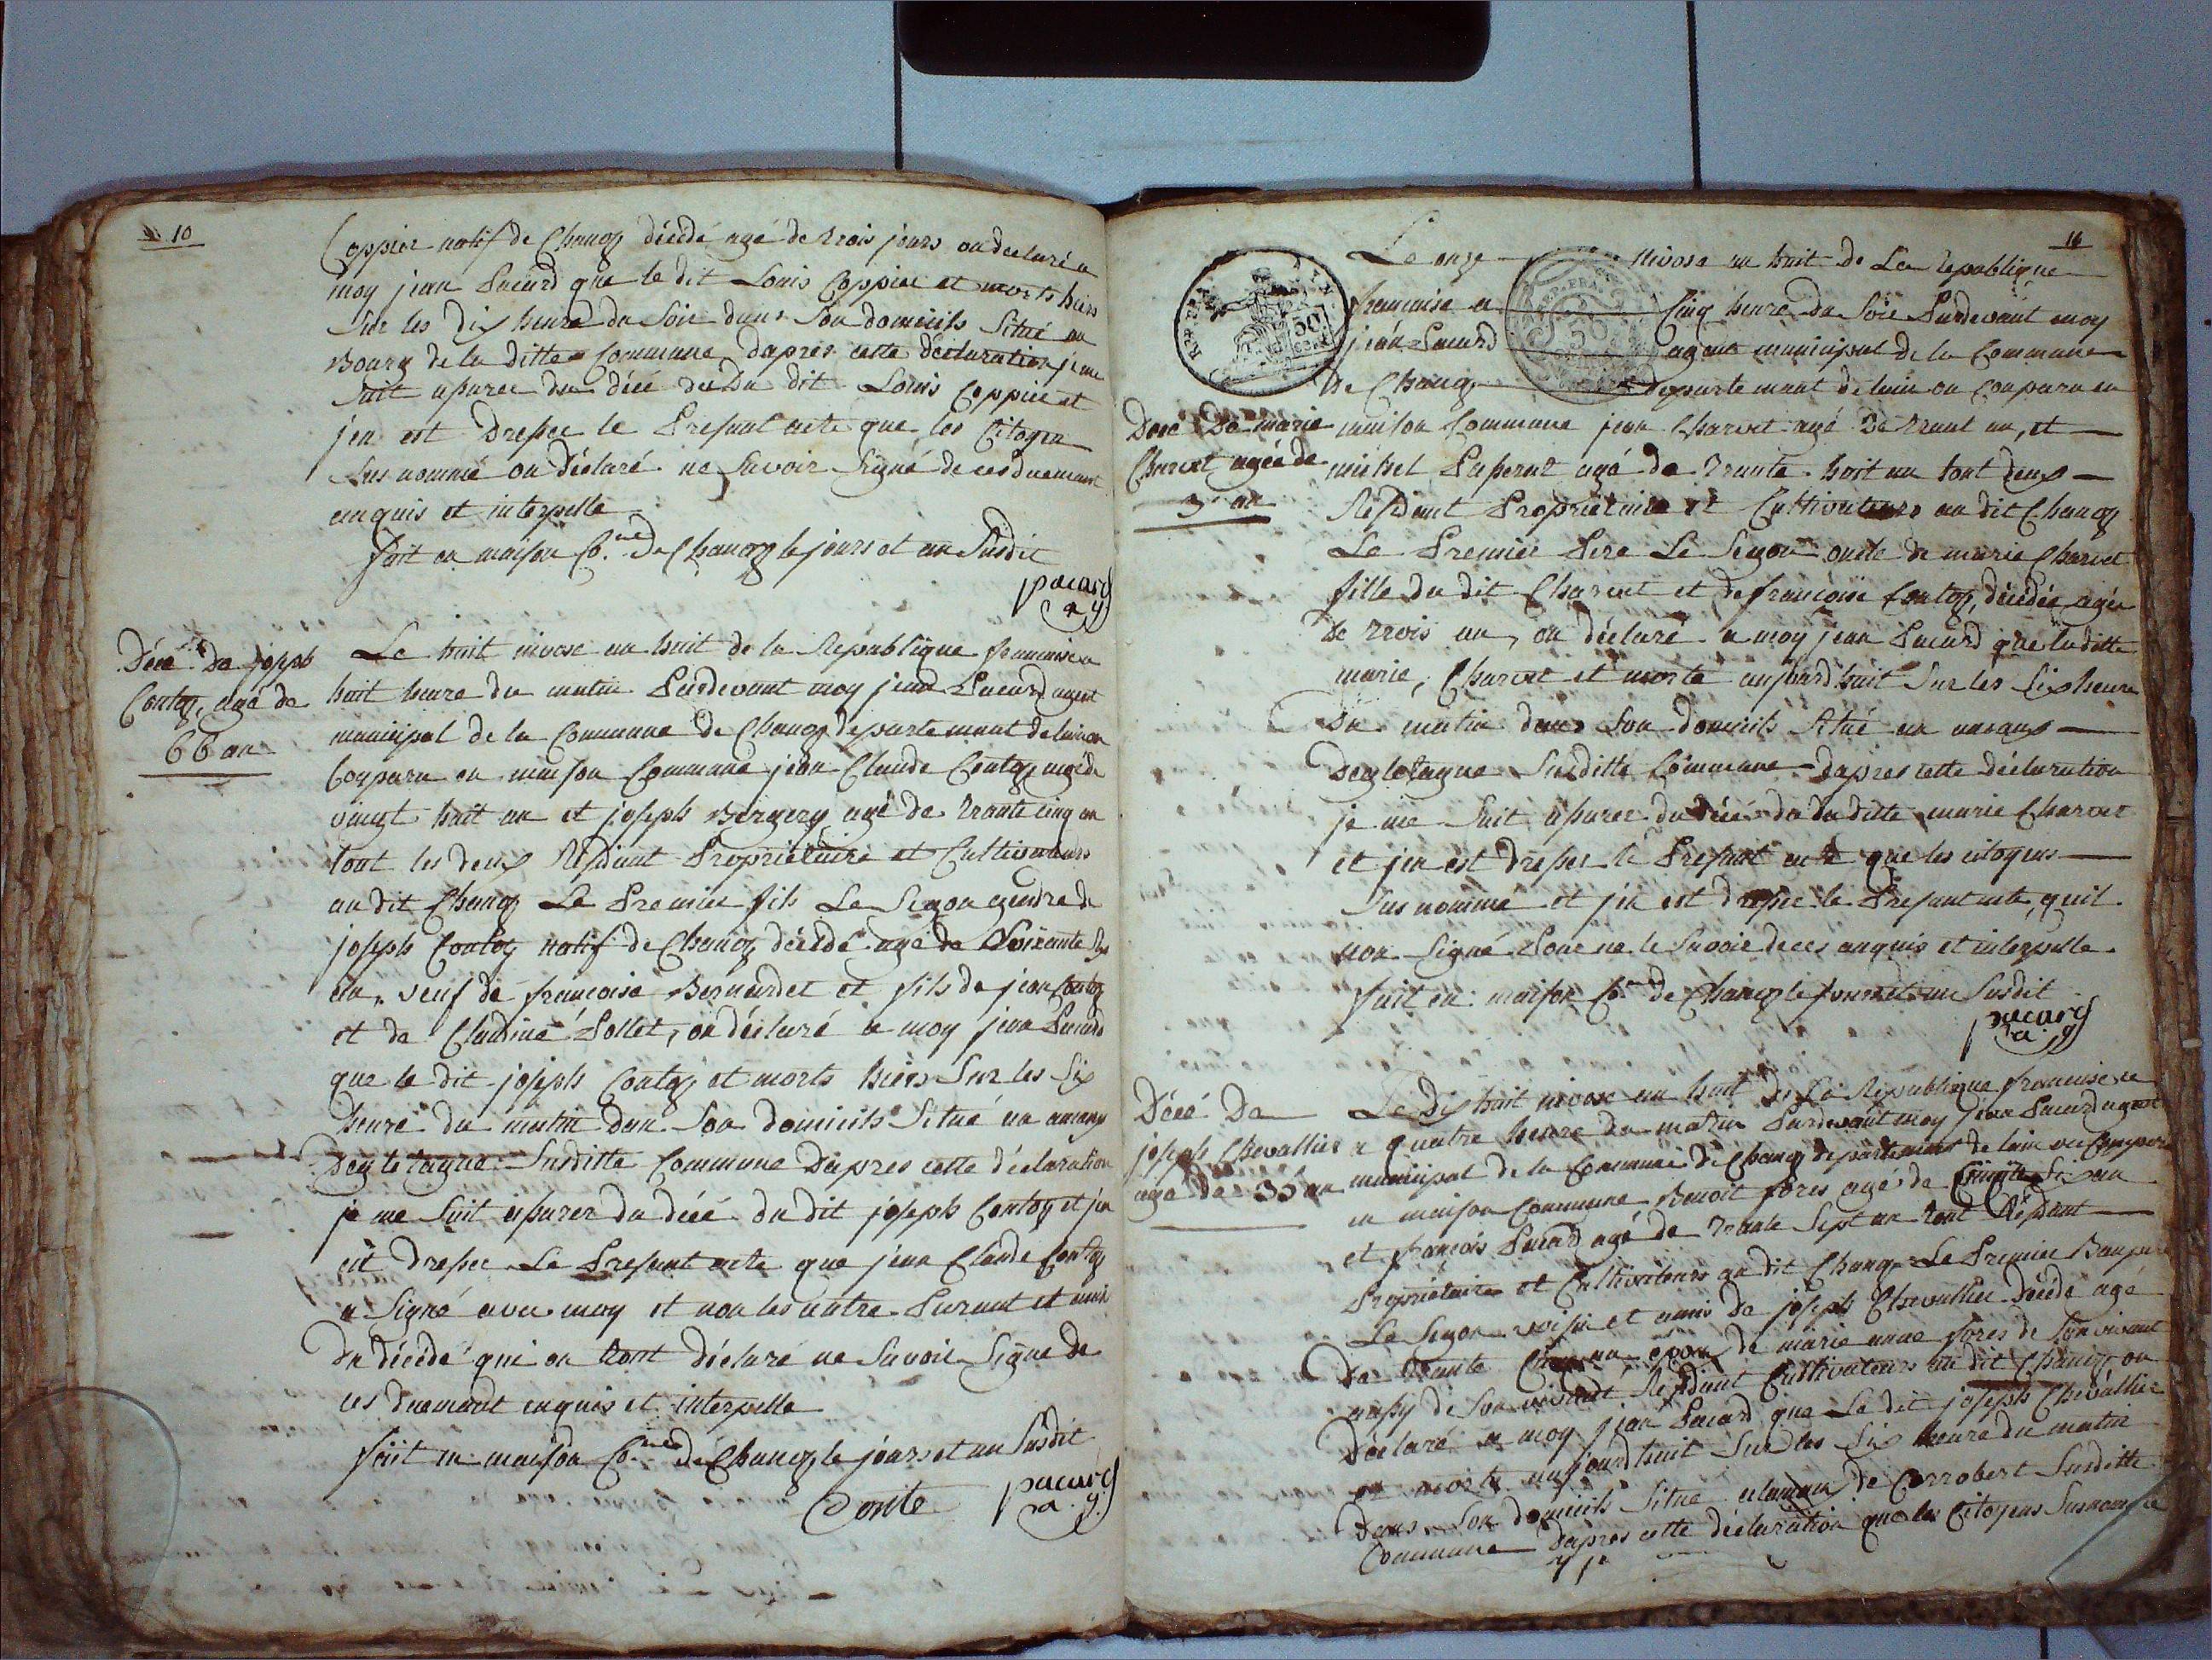 10
Coppier natif de Chanoz décédé agé de trois jours on declaré a
moy jean Pacard que le dit Louis Coppier et morts hiers
Sur les dix heure du Soir dans Son domicils Situé au
Bourg de la ditte Commune, dapres cette déclaration je me
Suit asurer du décé du Dit Louis Coppier et
jen est Dresser le Present acte que les Citoyen
Sus nommé on déclaré ne Savoir Signé de ces duemant
enquis et interpelle
fait en maison Co.ne de Chanoz le jours et an Susdit
pacard
a g
Décé De joseph
Contoz, agé de
66 an
Le huit nivose an huit de la Republique francaise a
huit heure du matin Pardevant moy jean Pacard agent
municipal de la Commune de Chanoz departemant de lain on
Conparu en maison Commune jean Claude Contoz agé de
vingt huit an et joseph Bergery agé de trante cinq an
tout les deux Résidant Propriétaire et Cultivateurs
au dit Chanoz Le Premier fils Le Segon gendre de
joseph Contoz natif de Chanoz décédé agé de Soixante Six
an, veuf de francoise Bernardet et fils de jean Contoz
et de Claudine Pollet, on déclaré a moy jean Pacard
que le dit joseph Contoz et morts hiers Sur les Six
heure du matin dan Son domicils Situé au
Susditte Commune Dapres cette déclaration
je me Suit asurer du décé du dit joseph Contoz et jen
est dresser Le Present acte que jean Claude Contoz
a Signé avec moy et non les autre Parant et amis
du décédé qui on tout déclaré ne Savoir Signe de
ces duemant enquis et interpelle
fait en maison Co.ne de Chanoz le jours et an Susdit
Conte pacard
a. g.
16
Le onze Nivose an huit de La Republique
REP. FRA.
50
CENT.
REP. FRA.
50
francaise a Cinq heure du Soir Pardevant moy
jean Pacard agent municipal de la Commune
De Chanoz departemant de lain on Conparu en
Décé De marie
Charvet agée de
3 an
maison Commune jean Charvet agé De trant an, et
michel agé de trante huit an tout deux
Résidant Propriétaire et Cultivateurs au dit Chanoz
Le Premier Pere Le Segon oncle de marie Charvet
fille du dit Charvet et de francoise Contoz, décédée agée
De trois an, on déclaré a moy jean Pacard que laditte
marie, Charvet et morte aujourdhuit Sur les Six heure
Du matin dans Son domicils Situé au
Susditte Commune Dapres cette déclaration
je me Suit asurer du décé de la ditte marie Charvet
et jen est dresser le Present acte que les citoyens
Sus nommé et jen est dresser le Present acte, quil
non Signé Pour ne le Savoir de ces enquis et interpelle
fait en maison Co.ne de Chanoz le jours et an Susdit
pacard
a g
Décé De
joseph Chevallier
agé de 35 an
Le Dix huit nivose an huit De La République francaise
a quatre heure du matin Pardevant moy jean Pacard agent
municipal de la Commune de Chanoz departemant de lain on Conparu
en maison Commune, Benoit fores agé de Six an
et françois Pacard agé de trante Sept an tout Résidant
Propriétaire et Cultivateurs au dit Chanoz Le Premier Baupere
Le Segon voisin et amis de joseph Chevallier décédé agé
De trante Cinq an epoux de marie anne fores de Son vivant
de Son vivant Résidant Cultivateurs au dit Chanoz, on
Déclaré a moy jean Pacard que Le dit joseph Chevallier
et morts aujourdhuit Sur les Six heure du matin
Dans Son domicils Situé de Corrobert Susditte
Commune Dapres cette déclaration que les Citoyens Susnommé